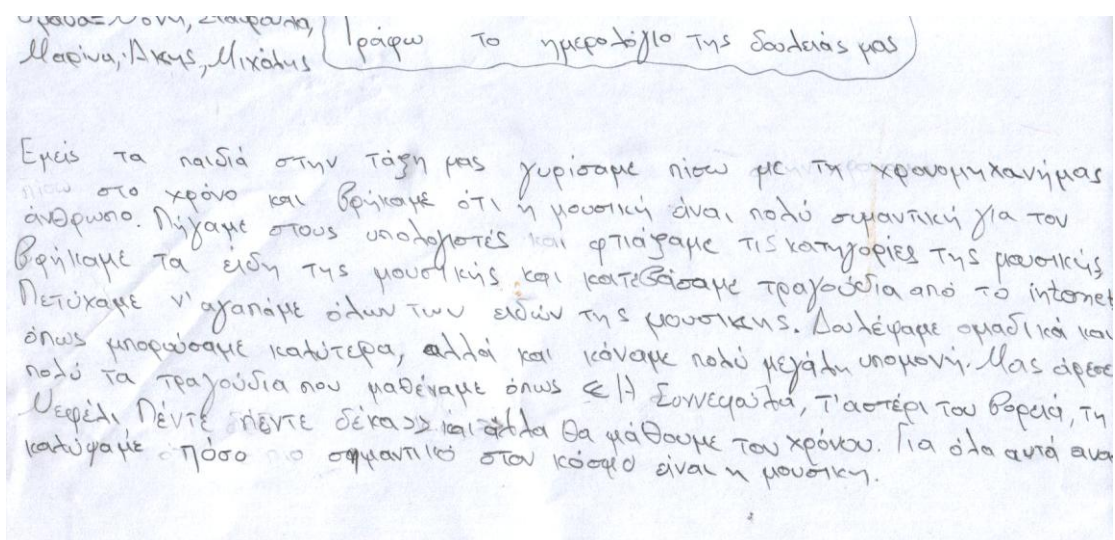 Ομάδα= Νόνη, Σταυρούλα,
Μαρίνα, Άκης, Μιχάλης
Γράφω το ημερολόγιο της δουλειάς μας
Εμείς τα παιδιά στην τάξη μας γυρίσαμε πίσω με τη χρονομηχανή μας
πίσω στο χρόνο και βρήκαμε ότι η μουσική είναι πολύ συμαντική για τον
άνθρωπο. Πήγαμε στους υπολογιστές και φτιάξαμε τις κατηγορίες της μουσικής
βρήκαμε τα είδη της μουσικής και κατεβάσαμε τραγούδια από το internet
Πετύχαμε ν' αγαπάμε όλων των ειδών της μουσικης. Δουλέψαμε ομαδικά και
όπως μπορούσαμε καλύτερα, αλλά και κάναμε πολύ μεγάλη υπομονή. Μας άρεσε
πολύ τα τραγούδια που μαθέναμε όπως << Η Συννεφούλα, τ' αστέρι του βοριά, τη
Νεφέλη Πέντε πέντε δέκα>> και άλλα θα μάθουμε του χρόνου. Για όλα αυτά ανα
καλύψαμε πόσο σημαντικό στον κόσμο είναι η μουσικη.